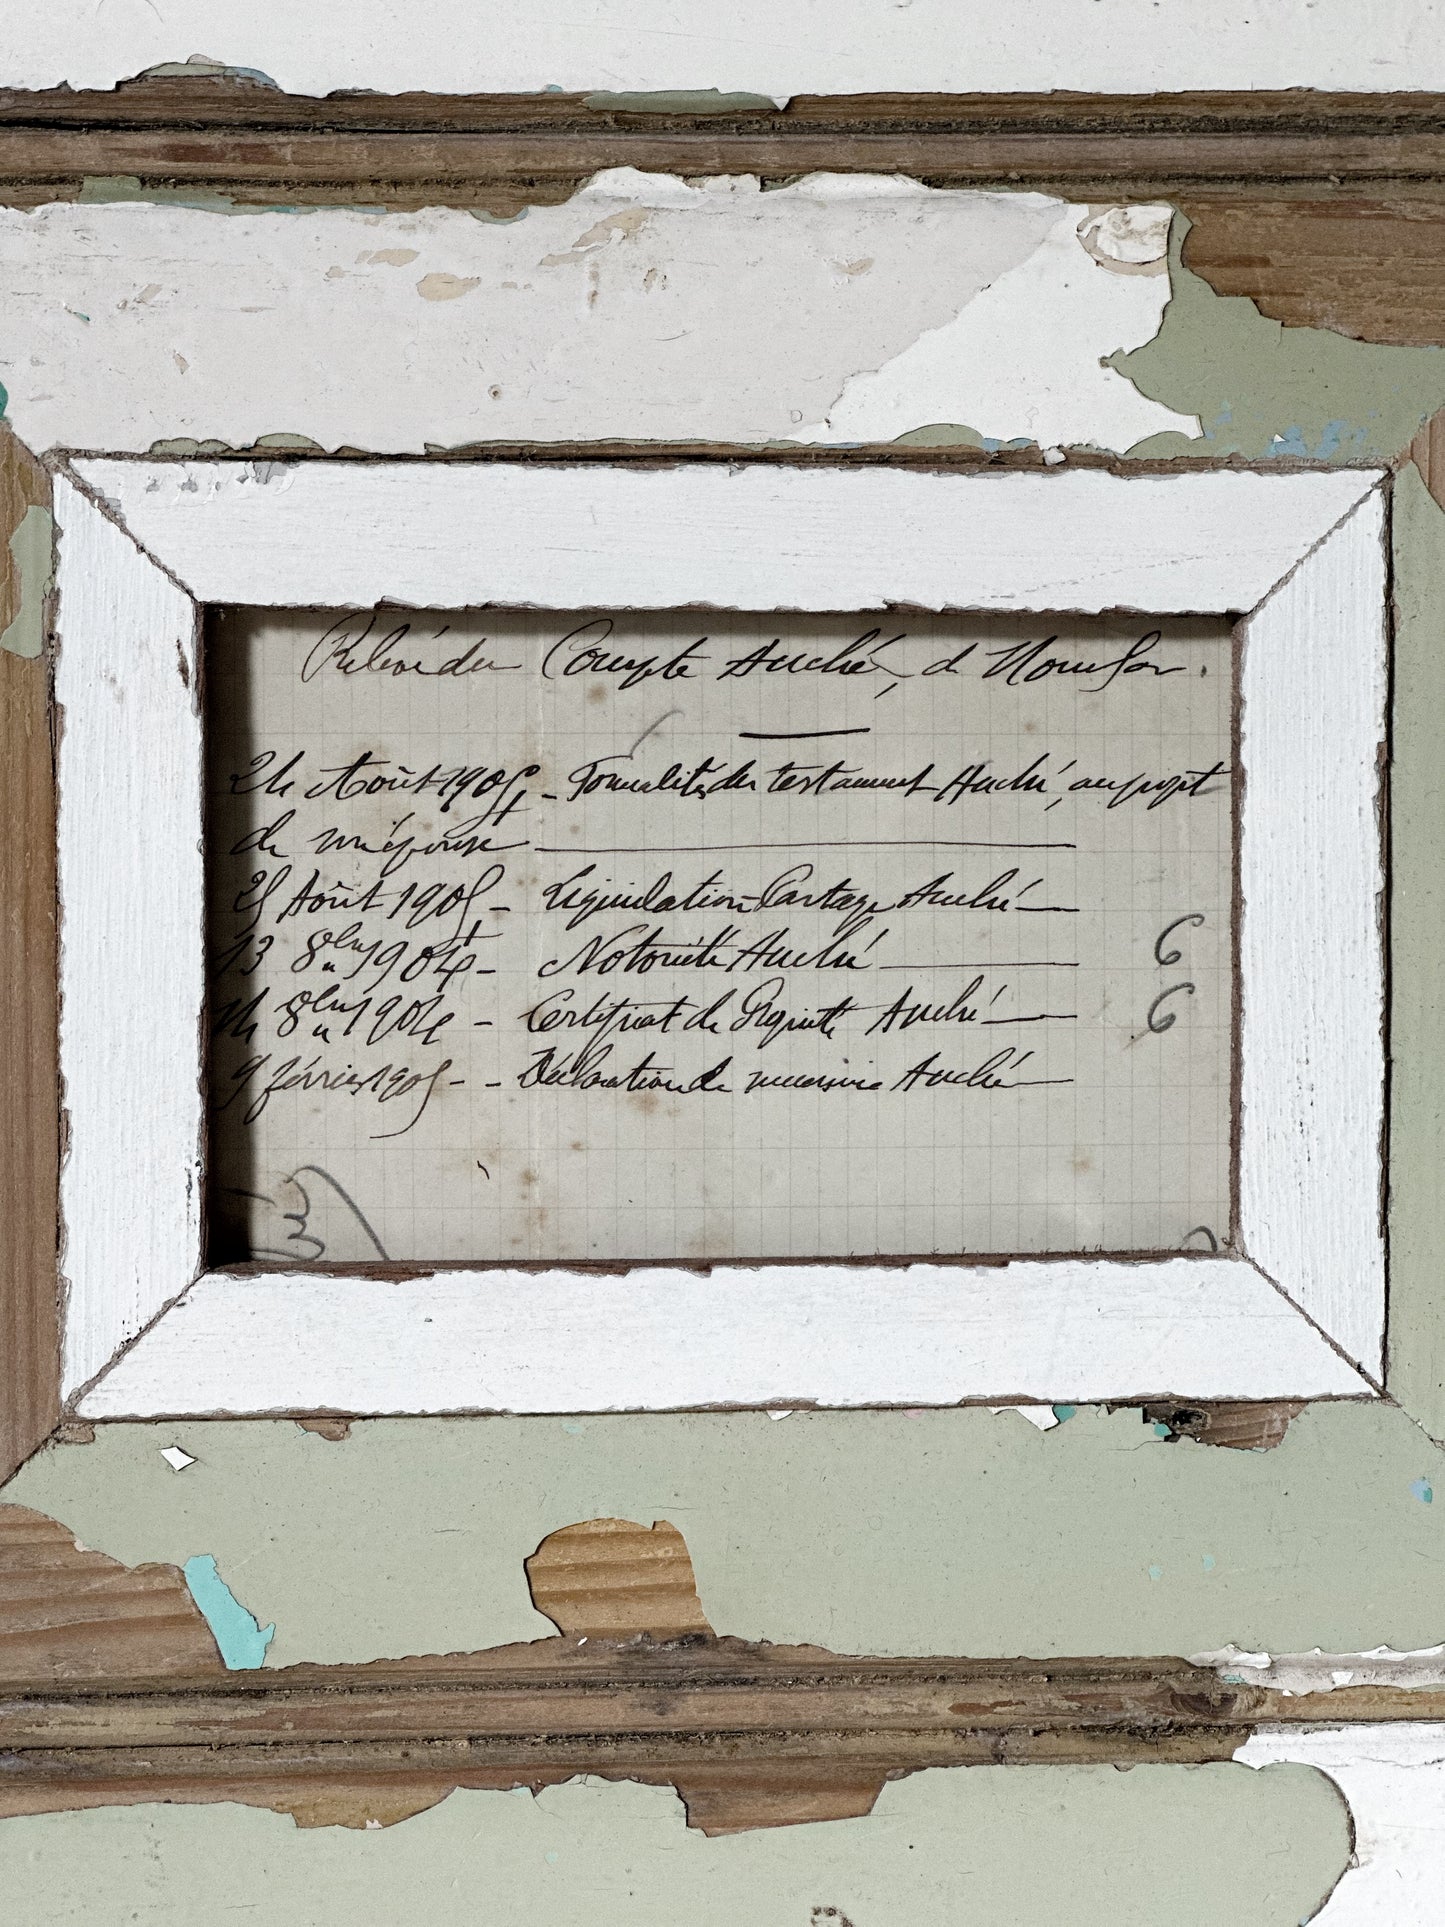 Relevé du Compte Auché, de
24 Août 1905, - Formalités du testament Auché, au profit
de son épouse
25 Août 1905 - Liquidation Partage Auché
13 8bre 1904 - Notoriété Auché 6
14 8bre 1904 - Certificat de Propriété Auché 6
9 février 1905 - - Déclaration de succession Auché